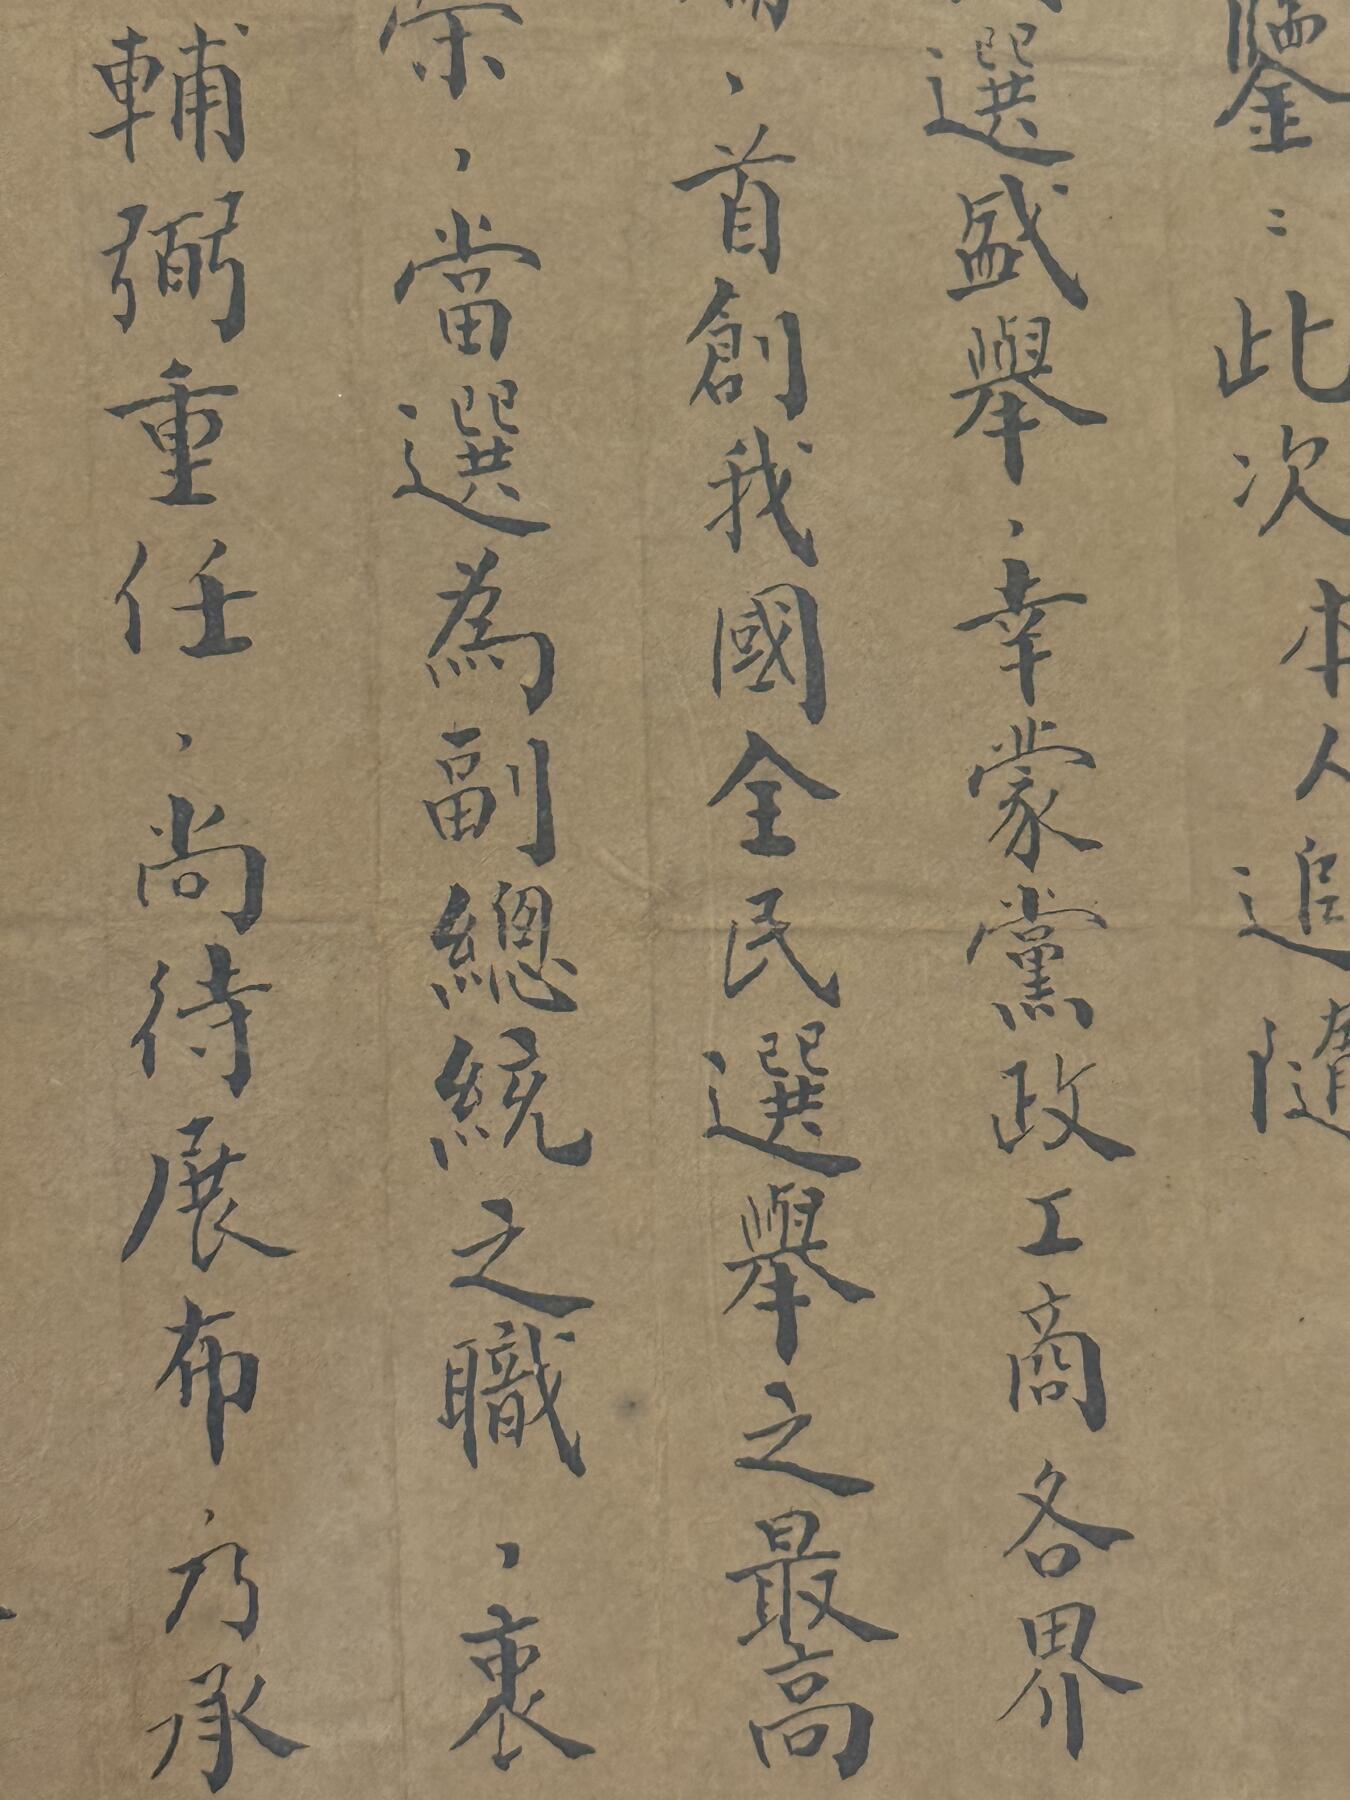 鑒：此次本人追隨
選盛舉，幸蒙黨政工商各界
，首創我國全民選舉之最高
榮，當選為副總統之職，衷
輔弼重任，尚待展布，乃承